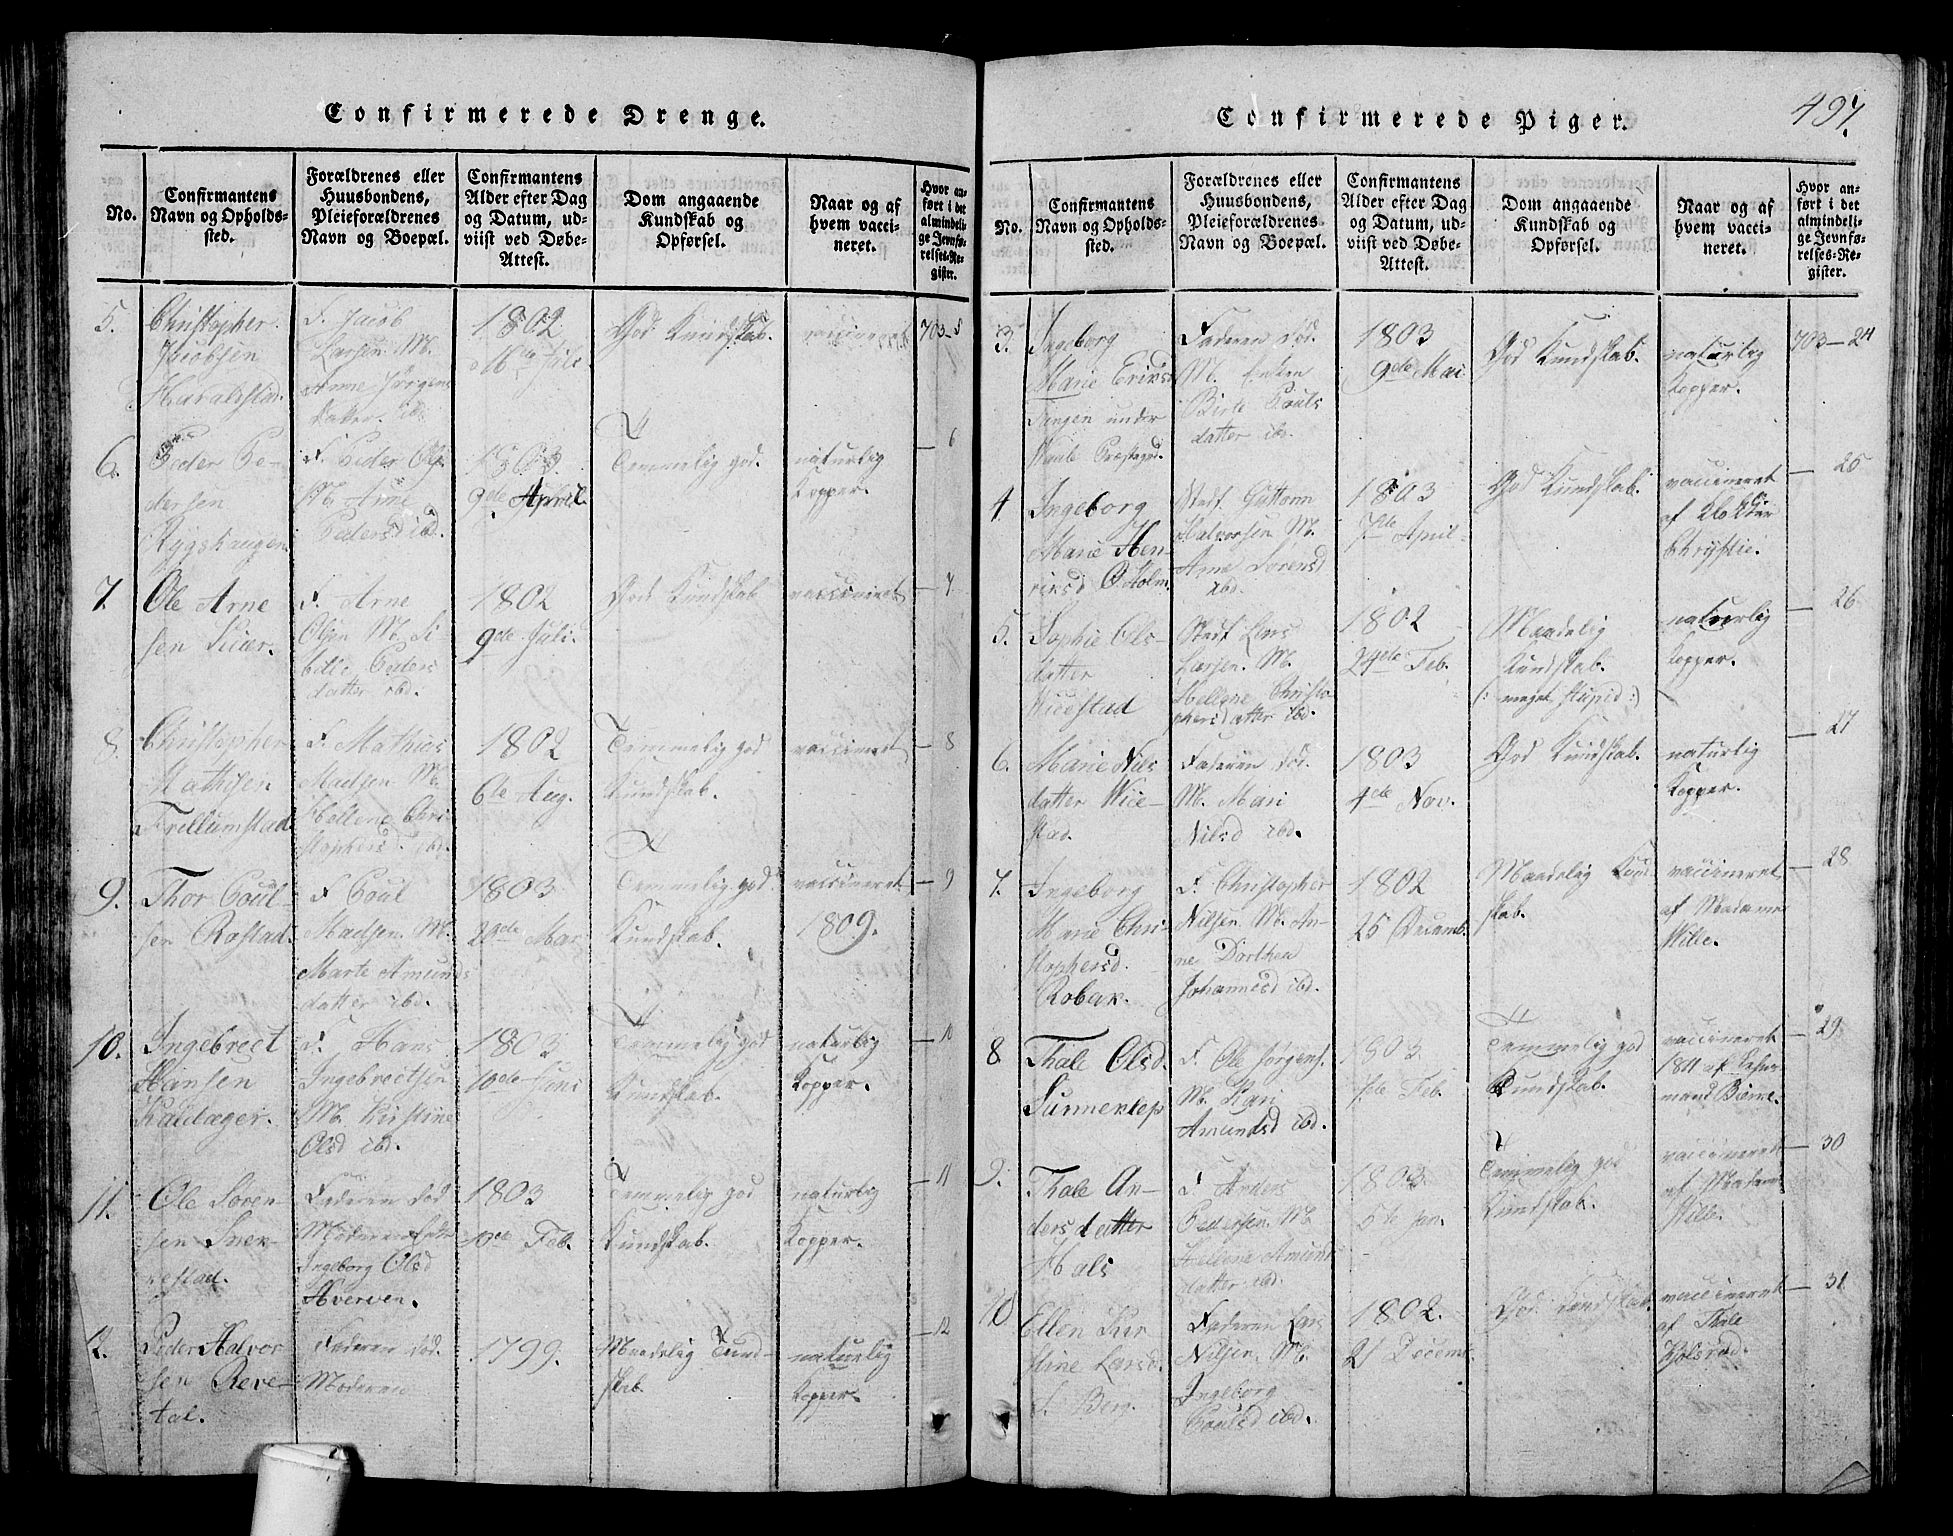 Confirmerede Drenge.
No.
Confirmantens
Navn og Opholds-
sted.
Forældrenes eller
Huusbondens,
Pleieforældrenes
Navn og Boepæl.
Confirmantens
Alder efter Dag
og Datum, ud-
viist ved Døbe-
Attest.
Dom angaaende
Kundskab og
Opførsel.
Naar og af
hvem vacci-
neret.
Hvor an-
ført i det
almindeli-
ge Jevnfø-
relses-Re-
gister.
5.
Christopher
Jacobsen
Haraldstad.
F. Jacob
Larsen. M.
Anne Jørgens
datter. ibd.
1802
16de Juli
God Kundskab.
vaccineret
703-5
6.
Peder Pe-
dersen
Rygshaugen
F. Peder Ols.
M. Anne
Pedersd ibd.
1803
9de April.
Temmelig god.
naturlig
Kopper.
6
7.
Ole Arne
sen
F. Arne
Olsen M. Si
bille Peders
datter ibd.
1802
9de Juli.
God Kundskab
vaccineret
7
8.
Christopher
Mathisen
Trillumstad
F. Mathies
Madsen M.
Hellene Chri
stophersd. ibd.
1802
6te Aug.
Temmelig god
Kundskab.
vaccineret
8
9.
Thor Poul-
sen Rostad.
F Poul
Madsen M.
Marte Amunds
datter ibd.
1803
Mar.
Temmelig god
Kundskab.
vaccineret
1809.
9
10.
Ingebrect
Hansen
F. Hans
Ingebrectsen
M. Kirstine
Olsd ibd.
1803
10de Juni
Temmelig god
Kundskab.
naturlig
Kopper.
10
11.
Ole Soren-
sen
Faderen død
Moderen Enke
Ingeborg Olsd
Averven.
1803
Feb.
Temmelig god
Kundskab.
naturlig
Kopper.
11
12.
Peder Halvor
sen Reve-
tal.
Faderen død.
Moderen
1799.
Maadelig Kund-
skab.
naturlig
Kopper.
12
Confirmerede Piger.
497.
No.
Confirmantens
Navn og Opholds-
sted.
Forældrenes eller
Huusbondens,
Pleieforældrenes
Navn og Boepæl.
Confirmantens
Alder efter Dag
og Datum, ud-
viist ved Døbe-
Attest.
Dom angaaende
Kundskab og
Opførsel.
Naar og af
hvem vacci-
neret.
Hvor an-
ført i det
almindeli-
ge Jevnfø-
relses-Re-
gister.
3.
Ingeborg
Marie Eriks
under
Faderen død.
M. Enken
Birte Pouls
datter ibd.
1803
9de Mai
God Kundskab.
naturlig
Kopper.
703-24
4.
Ingeborg
Marie Hen-
riksd Holm.
Stedf Guttorm
Halvorsen M.
Anne Sørensd
ibd.
1803
7de April
God Kundskab.
vaccineret
af
Chrystie.
25
5.
Sophie Ols-
datter
Wicestad
Stedf Lars
Larsen. M.
Hellene Christo
phersdatter ibd.
1802
24de Feb.
Maadelig
Kundskab.
(: meget stupid :)
naturlig
Kopper.
26
6.
Marie Niels
datter Wice-
stad.
Faderen død.
M. Mari
Nilsd ibd.
1803
4de Nov.
God Kundskab.
naturlig
Kopper.
27
7.
Ingeborg
Marie Chri-
stophersd.
Robak.
F. Christopher
Nilsen M. An-
ne Dorthea
Johannesd ibd.
1802
25 Decemb.
Maadelig Kund
skab.
vaccineret
af Madame
Wille.
28
8
Thale Olsd.
F. Ole Jørgens.
M. Kari
Amundsd ibd.
1803.
Feb.
Temmelig god
Kundskab.
vaccineret
1811 af
29
9.
Thale An-
dersdatter
Hals
F. Anders
Pedersen. M.
Hellene Amunds
datter ibd.
1803
5te Jan.
Temmelig god
Kundskab.
vaccineret
af Madam
Wille.
30
10
Ellen Kir
stine Larsd.
Berg.
Faderen Lars
Nilsen. M.
Ingeborg
Poulsd ibd.
1802.
21 Decemb.
God Kundskab.
vaccineret
af Thale
31